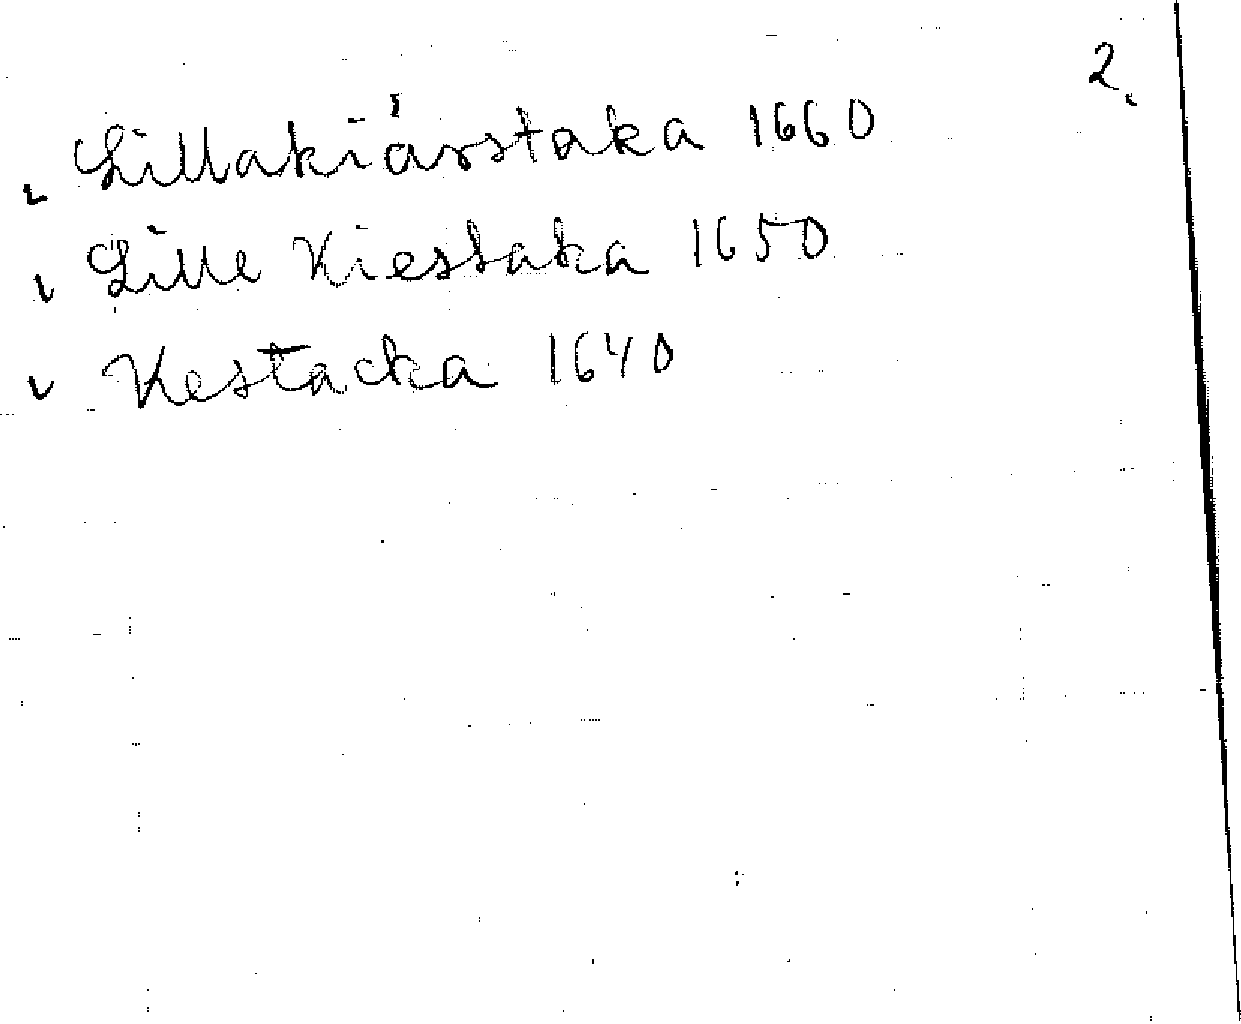 2.
✓ Lillakiärstaka 1660
✓ Lille Kiestaka 1650
✓ Kestacka 1640